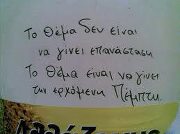 Το θέμα δεν είναι
να γίνει επανάσταση
Το θέμα είναι να γίνει
την ερχόμενη Πέμπτη.